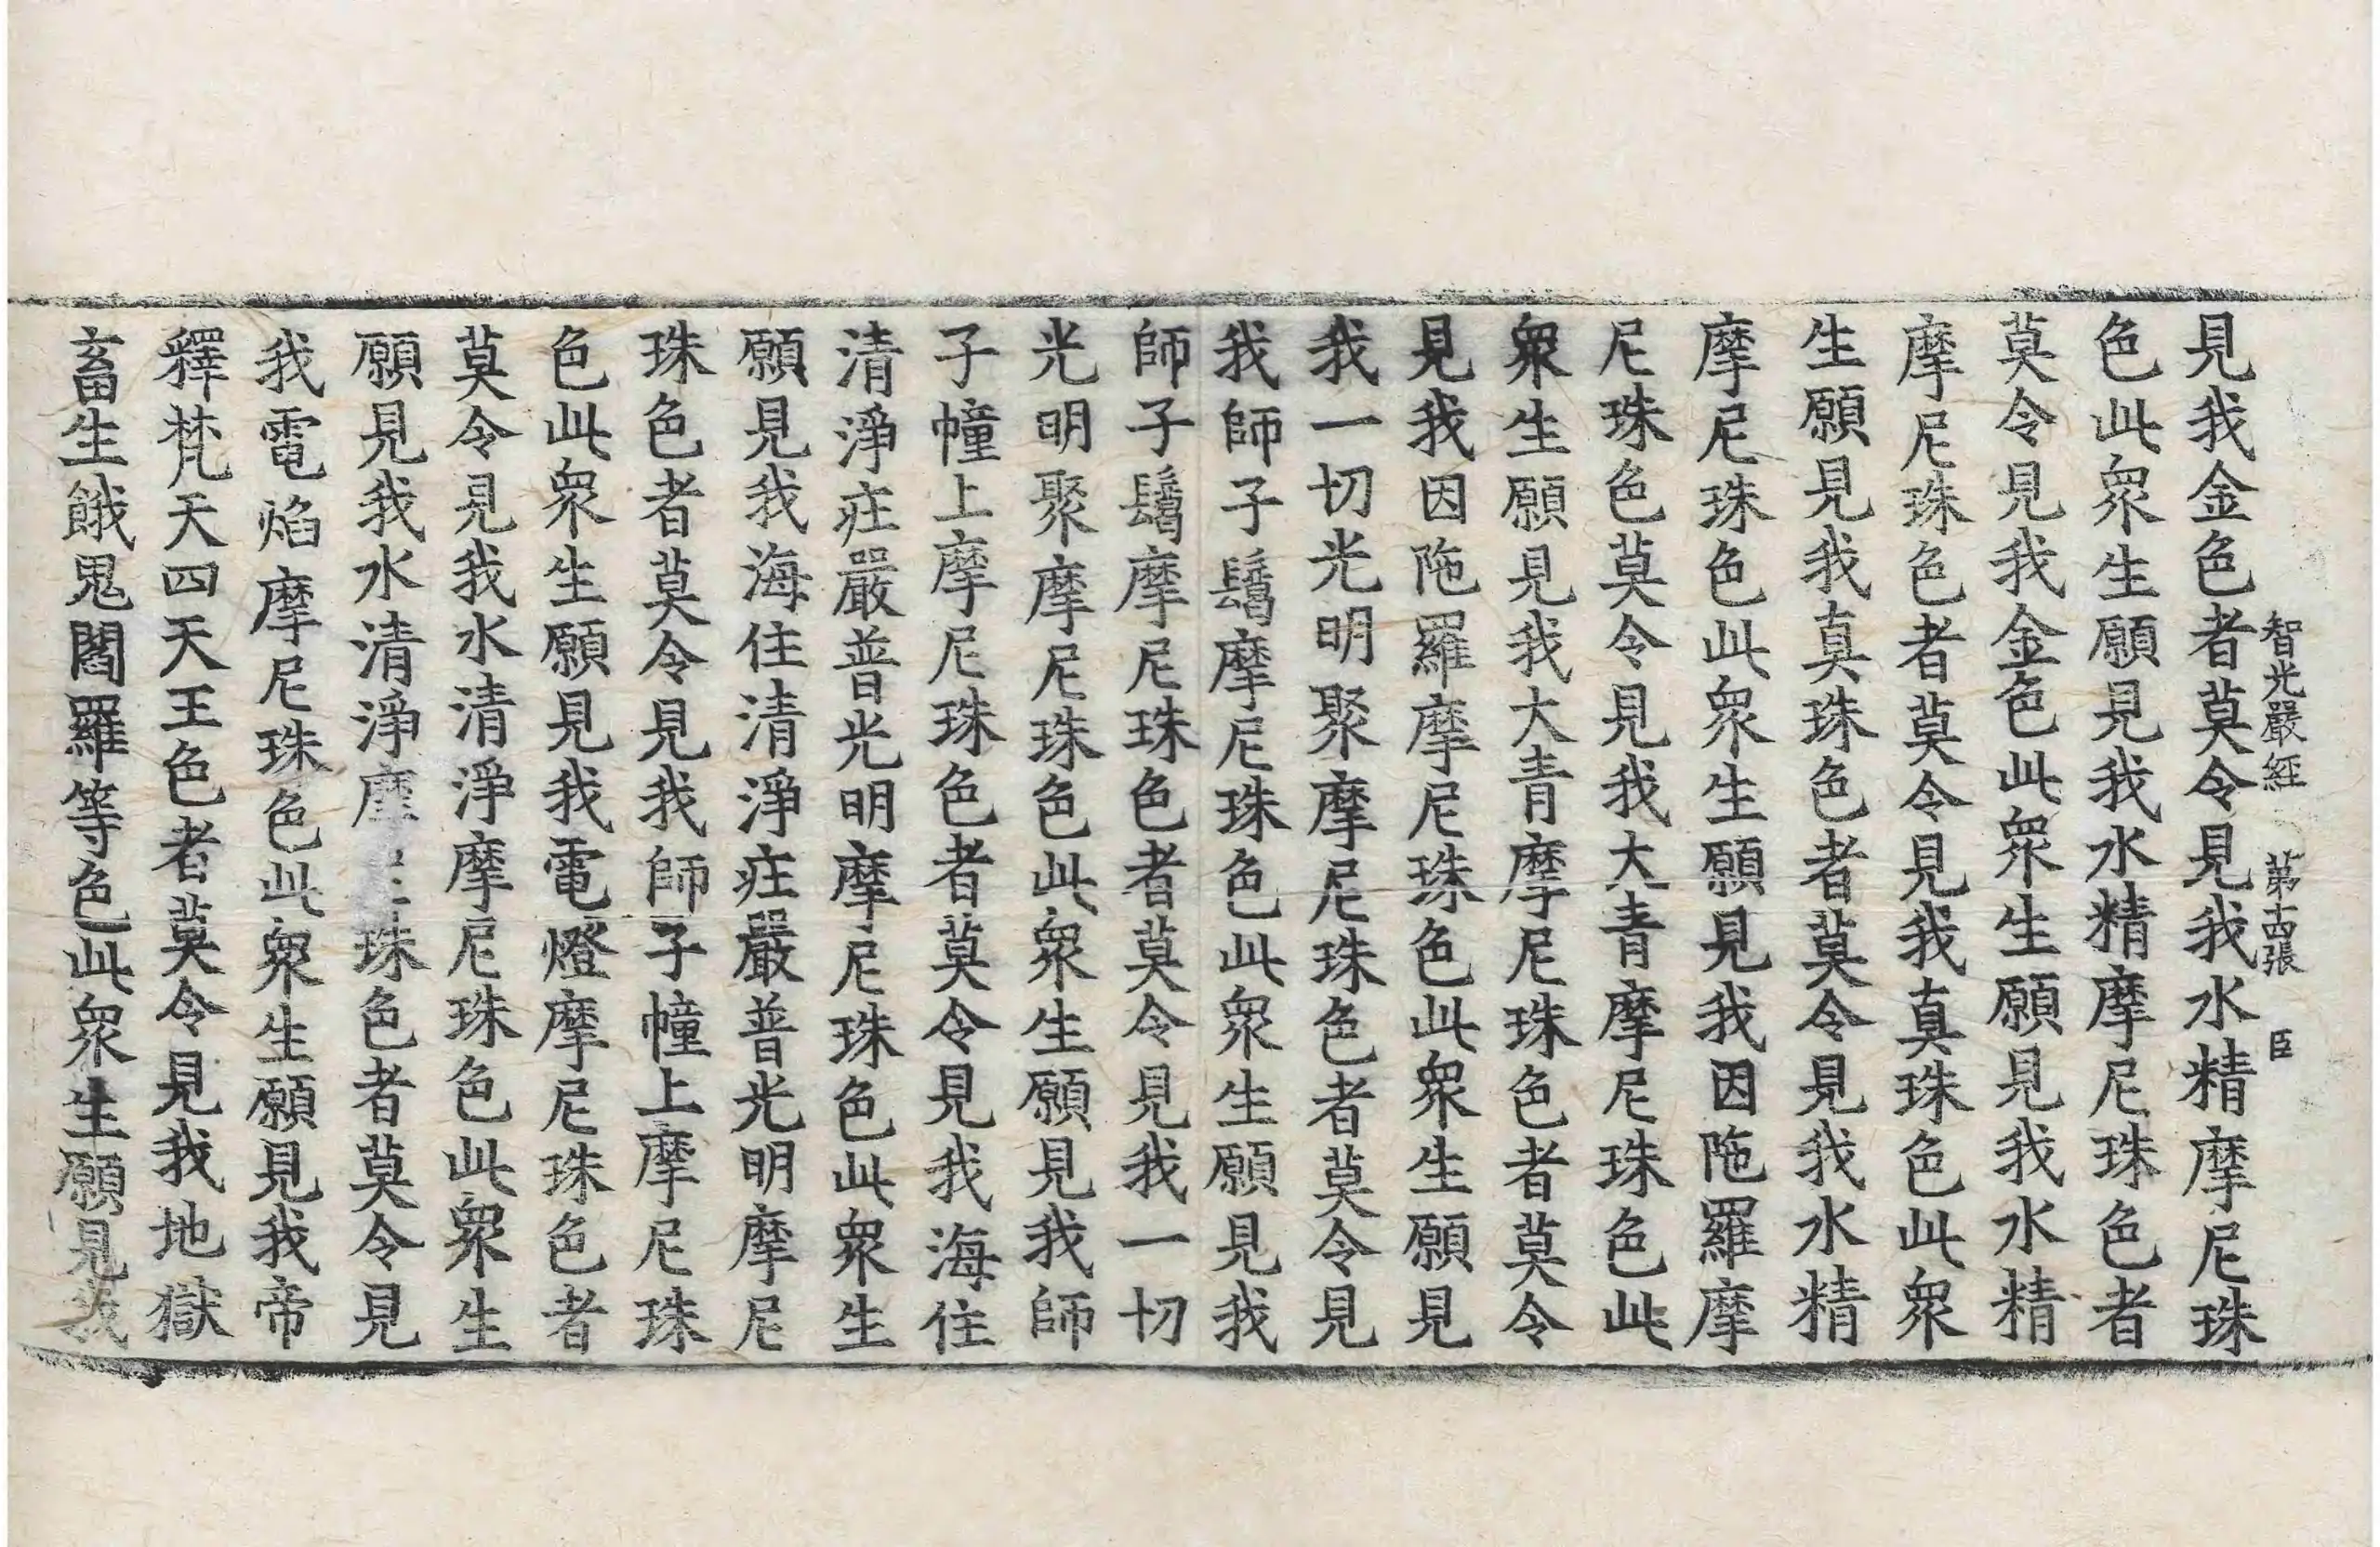 智光嚴經 第十四張 臣
見我金色者莫令見我水精摩尼珠
色此衆生願見我水精摩尼珠色者
莫令見我金色此衆生願見我水精
摩尼珠色者莫令見我真珠色此衆
生願見我真珠色者莫令見我水精
摩尼珠色此衆生願見我因陁羅摩
尼珠色莫令見我大青摩尼珠色此
衆生願見我大青摩尼珠色者莫令
見我因陁羅摩尼珠色此衆生願見
我一切光明聚摩尼珠色者莫令見
我師子鬚摩尼珠色此衆生願見我
師子鬚摩尼珠色者莫令見我一切
光明聚摩尼珠色此衆生願見我師
子幢上摩尼珠色者莫令見我海住
清淨庄嚴普光明摩尼珠色此衆生
願見我海住清淨庄嚴普光明摩尼
珠色者莫令見我師子幢上摩尼珠
色此衆生願見我電燈摩尼珠色者
莫令見我水清淨摩尼珠色此衆生
願見我水清淨摩尼珠色者莫令見
我電焰摩尼珠色此衆生願見我帝
釋梵天四天王色者莫令見我地獄
畜生餓鬼閻羅等色此衆生願見我